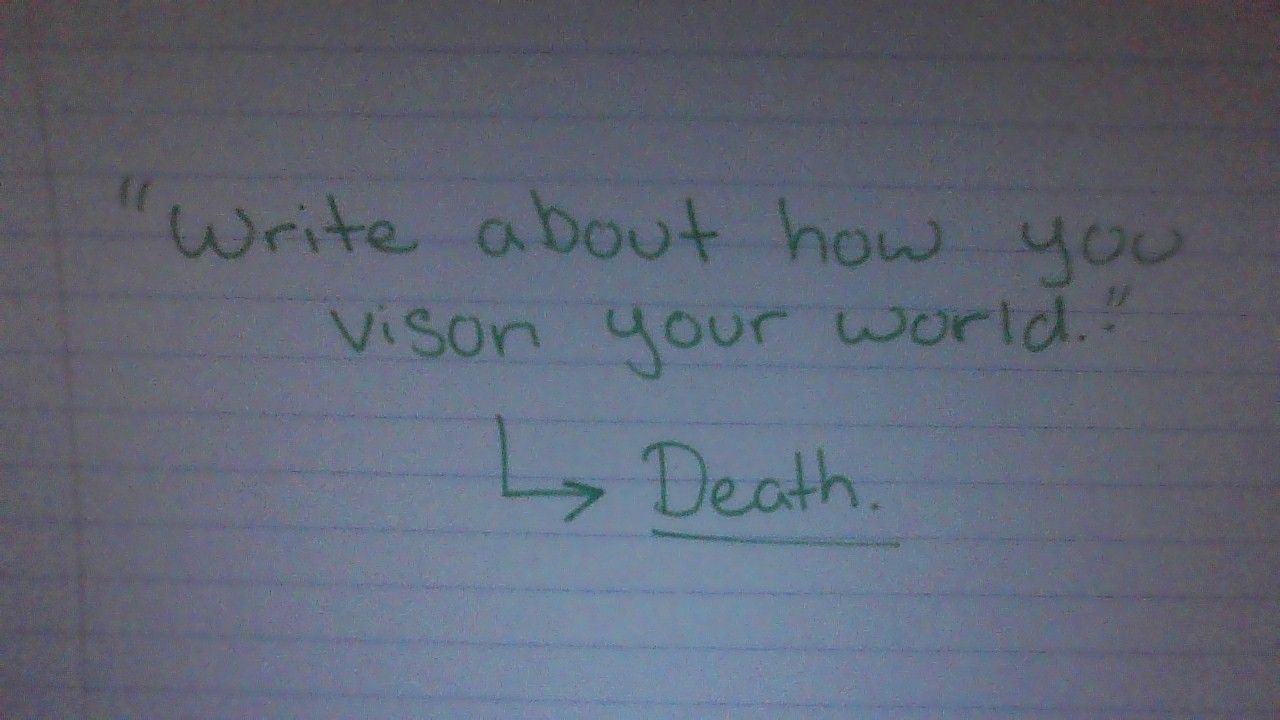 "Write about how you
vison your world."
Death.